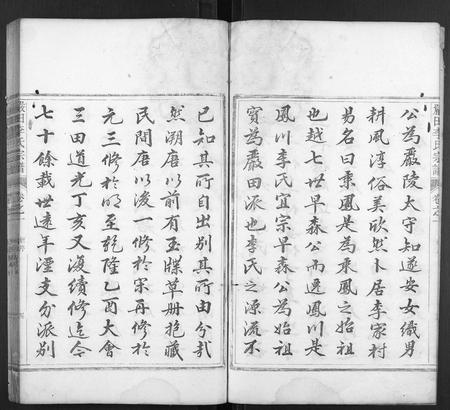 公為嚴陵太守知遂安女織男
耕風淳俗美欣然卜居李家村
易名曰乘鳳是為乘鳳之始祖
也越七世早森公而遷鳳川是
鳳川李氏宜宗早森公為始祖
實為嚴田派也李氏之源流不
已知其所自出別其所由分哉
然溯唐以前有玉牒草册抱藏
民間唐以後一修於宋再修於
元三修於明至乾隆乙酉大會
三田道光丁亥又復續修迄今
七十餘載世遠年湮支分派別
嚴田李氏宗譜
卷之一